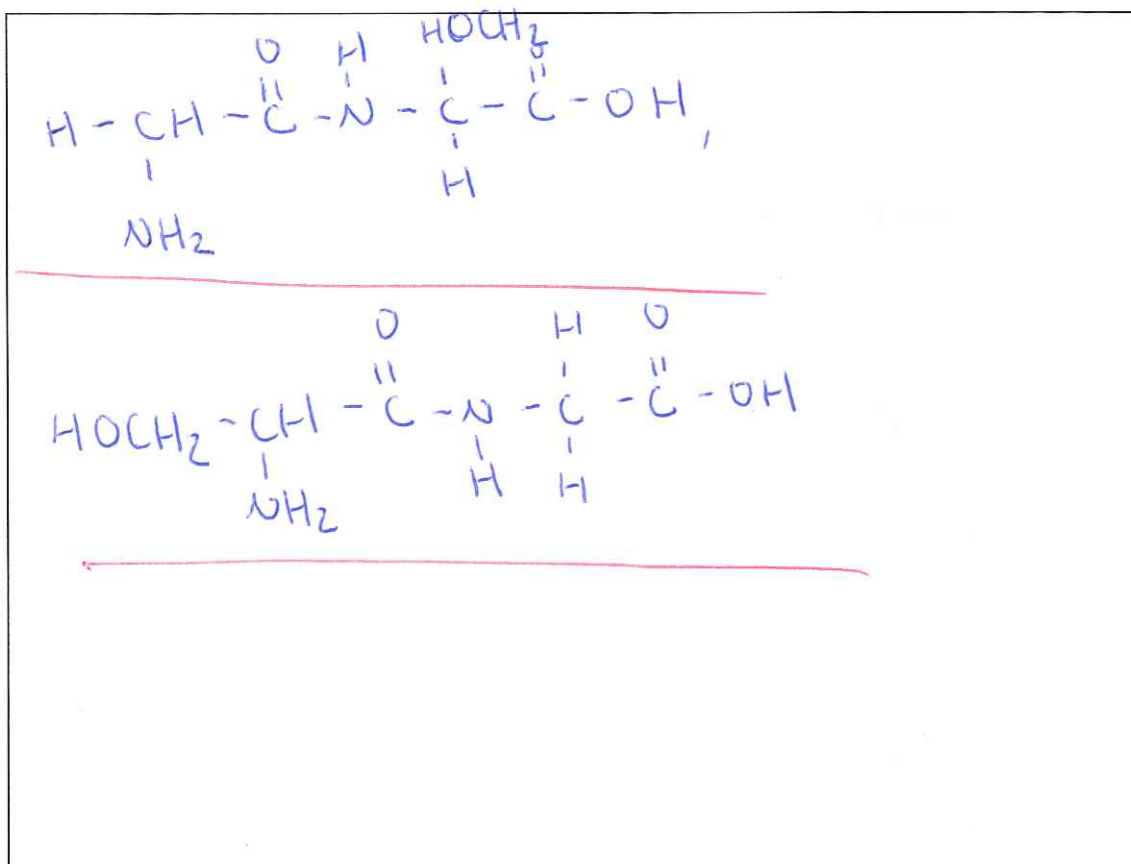 HOCH₂
O H O
|| | | ||
H - CH - C - N - C - C - OH,
| |
NH₂ H
O H O
|| | ||
HOCH₂ - CH - C - N - C - C - OH
| | |
NH₂ H H